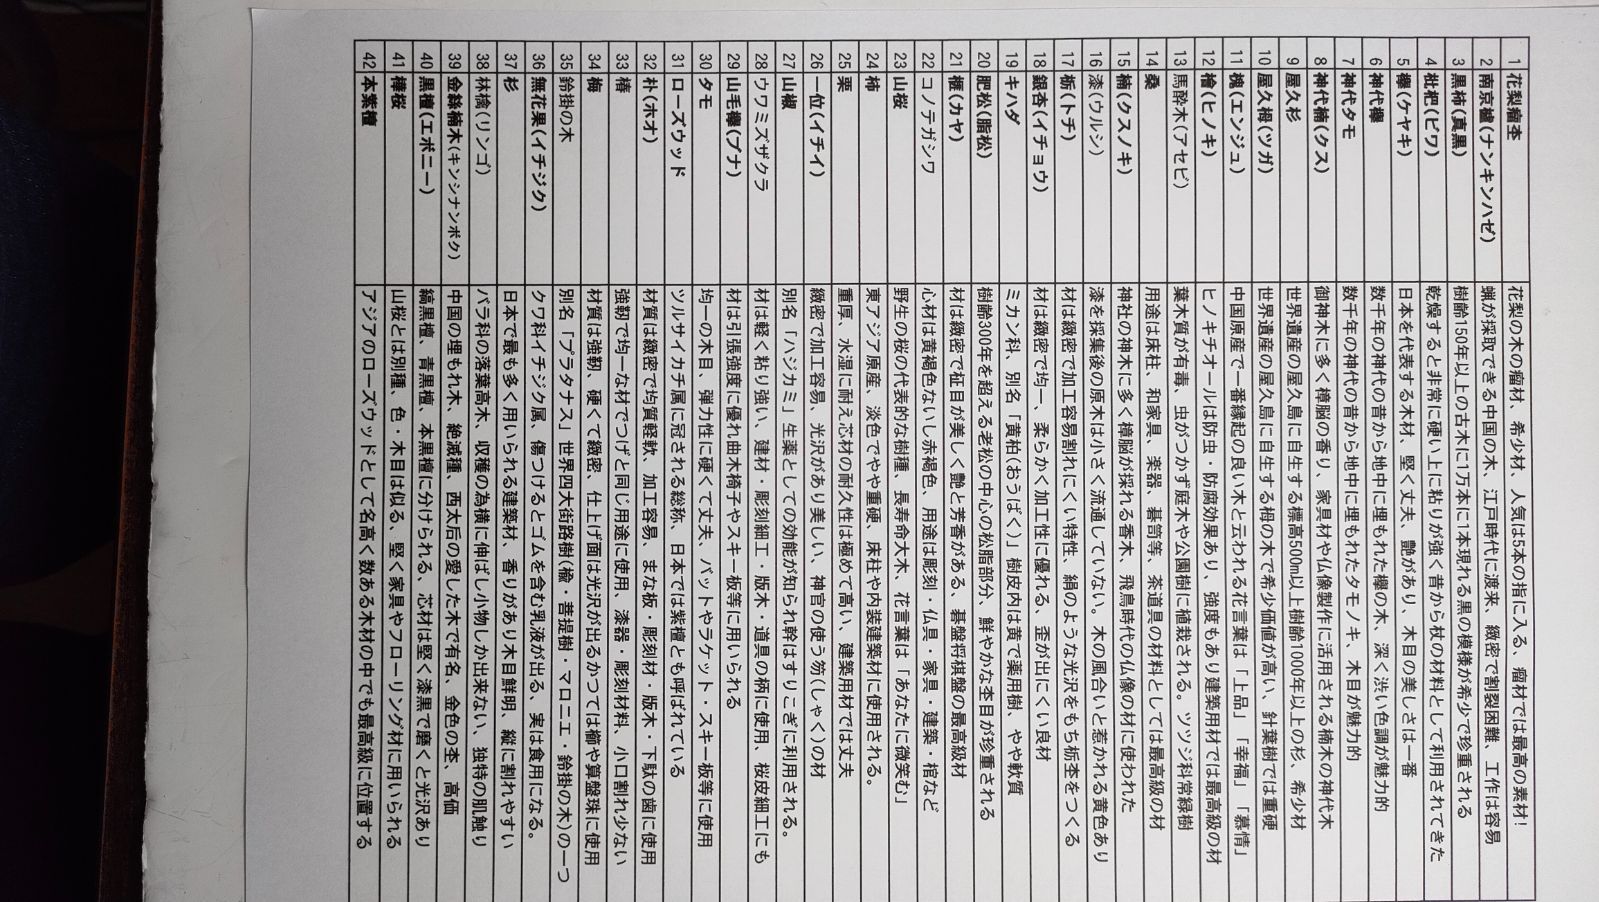 1 花梨瘤杢 花梨の木の瘤材、希少材、人気は5本の指に入る、瘤材では最高の素材！
2 南京櫨(ナンキンハゼ) 蝋が採取できる中国の木、江戸時代に渡来、緻密で割裂困難、工作は容易
3 黒柿(真黒) 樹齢150年以上の古木に1万本に1本現れる黒の模様が希少で珍重される
4 枇杷(ビワ) 乾燥すると非常に硬い上に粘りが強く昔から杖の材料として利用されてきた
5 欅(ケヤキ) 日本を代表する木材、堅く丈夫、艶があり、木目の美しさは一番
6 神代欅 数千年の神代の昔から地中に埋もれた欅の木、深く渋い色調が魅力的
7 神代タモ 数千年の神代の昔から地中に埋もれたタモノキ、木目が魅力的
8 神代楠(クス) 御神木に多く樟脳の香り、家具材や仏像製作に活用される楠木の神代木
9 屋久杉 世界遺産の屋久島に自生する標高500m以上樹齢1000年以上の杉、希少材
10 屋久栂(ツガ) 世界遺産の屋久島に自生する栂の木で希少価値が高い、針葉樹では重硬
11 槐(エンジュ) 中国原産で一番縁起の良い木と云われる花言葉は「上品」「幸福」「慕情」
12 檜(ヒノキ) ヒノキチオールは防虫・防腐効果あり、強度もあり建築用材では最高級の材
13 馬酔木(アセビ) 葉木質が有毒、虫がつかず庭木や公園樹に植栽される。ツツジ科常緑樹
14 桑 用途は床柱、和家具、楽器、碁笥等、茶道具の材料としては最高級の材
15 楠(クスノキ) 神社の神木に多く樟脳が採れる香木、飛鳥時代の仏像の材に使われた
16 漆(ウルシ) 漆を採集後の原木は小さく流通していない。木の風合いと惹かれる黄色あり
17 栃(トチ) 材は緻密で加工容易割れにくい特性、絹のような光沢をもち栃杢をつくる
18 銀杏(イチョウ) 材は緻密で均一、柔らかく加工性に優れる、歪が出にくい良材
19 キハダ ミカン科、別名「黄柏(おうばく)」樹皮内は黄で薬用樹、やや軟質
20 肥松(脂松) 樹齢300年を超える老松の中心の松脂部分、鮮やかな杢目が珍重される
21 榧(カヤ) 材は緻密で柾目が美しく艶と芳香がある、碁盤将棋盤の最高級材
22 コノテガシワ 心材は黄褐色ないし赤褐色、用途は彫刻・仏具・家具・建築・棺など
23 山桜 野生の桜の代表的な樹種、長寿命大木、花言葉は「あなたに微笑む」
24 柿 東アジア原産、淡色でやや重硬、床柱や内装建築材に使用される。
25 栗 重厚、水湿に耐え芯材の耐久性は極めて高い、建築用材では丈夫
26 一位(イチイ) 緻密で加工容易、光沢があり美しい、神官の使う笏(しゃく)の材
27 山椒 別名「ハジカミ」生薬としての効能が知られ幹はすりこぎに利用される。
28 ウワミズザクラ 材は軽く粘り強い、建材・彫刻細工・版木・道具の柄に使用、桜皮細工にも
29 山毛欅(ブナ) 材は引張強度に優れ曲木椅子やスキー板等に用いられる
30 タモ 均一の木目、弾力性に硬くて丈夫、バットやラケット・スキー板等に使用
31 ローズウッド ツルサイカチ属に冠される総称、日本では紫檀とも呼ばれている
32 朴(ホオ) 材質は緻密で均質軽軟、加工容易、まな板・彫刻材・版木・下駄の歯に使用
33 椿 強靭で均一な材でつげと同じ用途に使用、漆器・彫刻材料、小口割れ少ない
34 梅 材質は強靭、硬くて緻密、仕上げ面は光沢が出るかつては櫛や算盤珠に使用
35 鈴掛の木 別名「プラタナス」世界四大街路樹(楡・菩提樹・マロニエ・鈴掛の木)の一つ
36 無花果(イチジク) クワ科イチジク属、傷つけるとゴムを含む乳液が出る、実は食用になる。
37 杉 日本で最も多く用いられる建築材、香りがあり木目鮮明、縦に割れやすい
38 林檎(リンゴ) バラ科の落葉高木、収穫の為横に伸ばし小物しか出来ない、独特の肌触り
39 金絲楠木(キンシナンボク) 中国の埋もれ木、絶滅種、西太后の愛した木で有名、金色の杢、高価
40 黒檀(エボニー) 縞黒檀、青黒檀、本黒檀に分けられる、芯材は堅く漆黒で磨くと光沢あり
41 樺桜 山桜とは別種、色・木目は似る、堅く家具やフローリング材に用いられる
42 本紫檀 アジアのローズウッドとして名高く数ある木材の中でも最高級に位置する